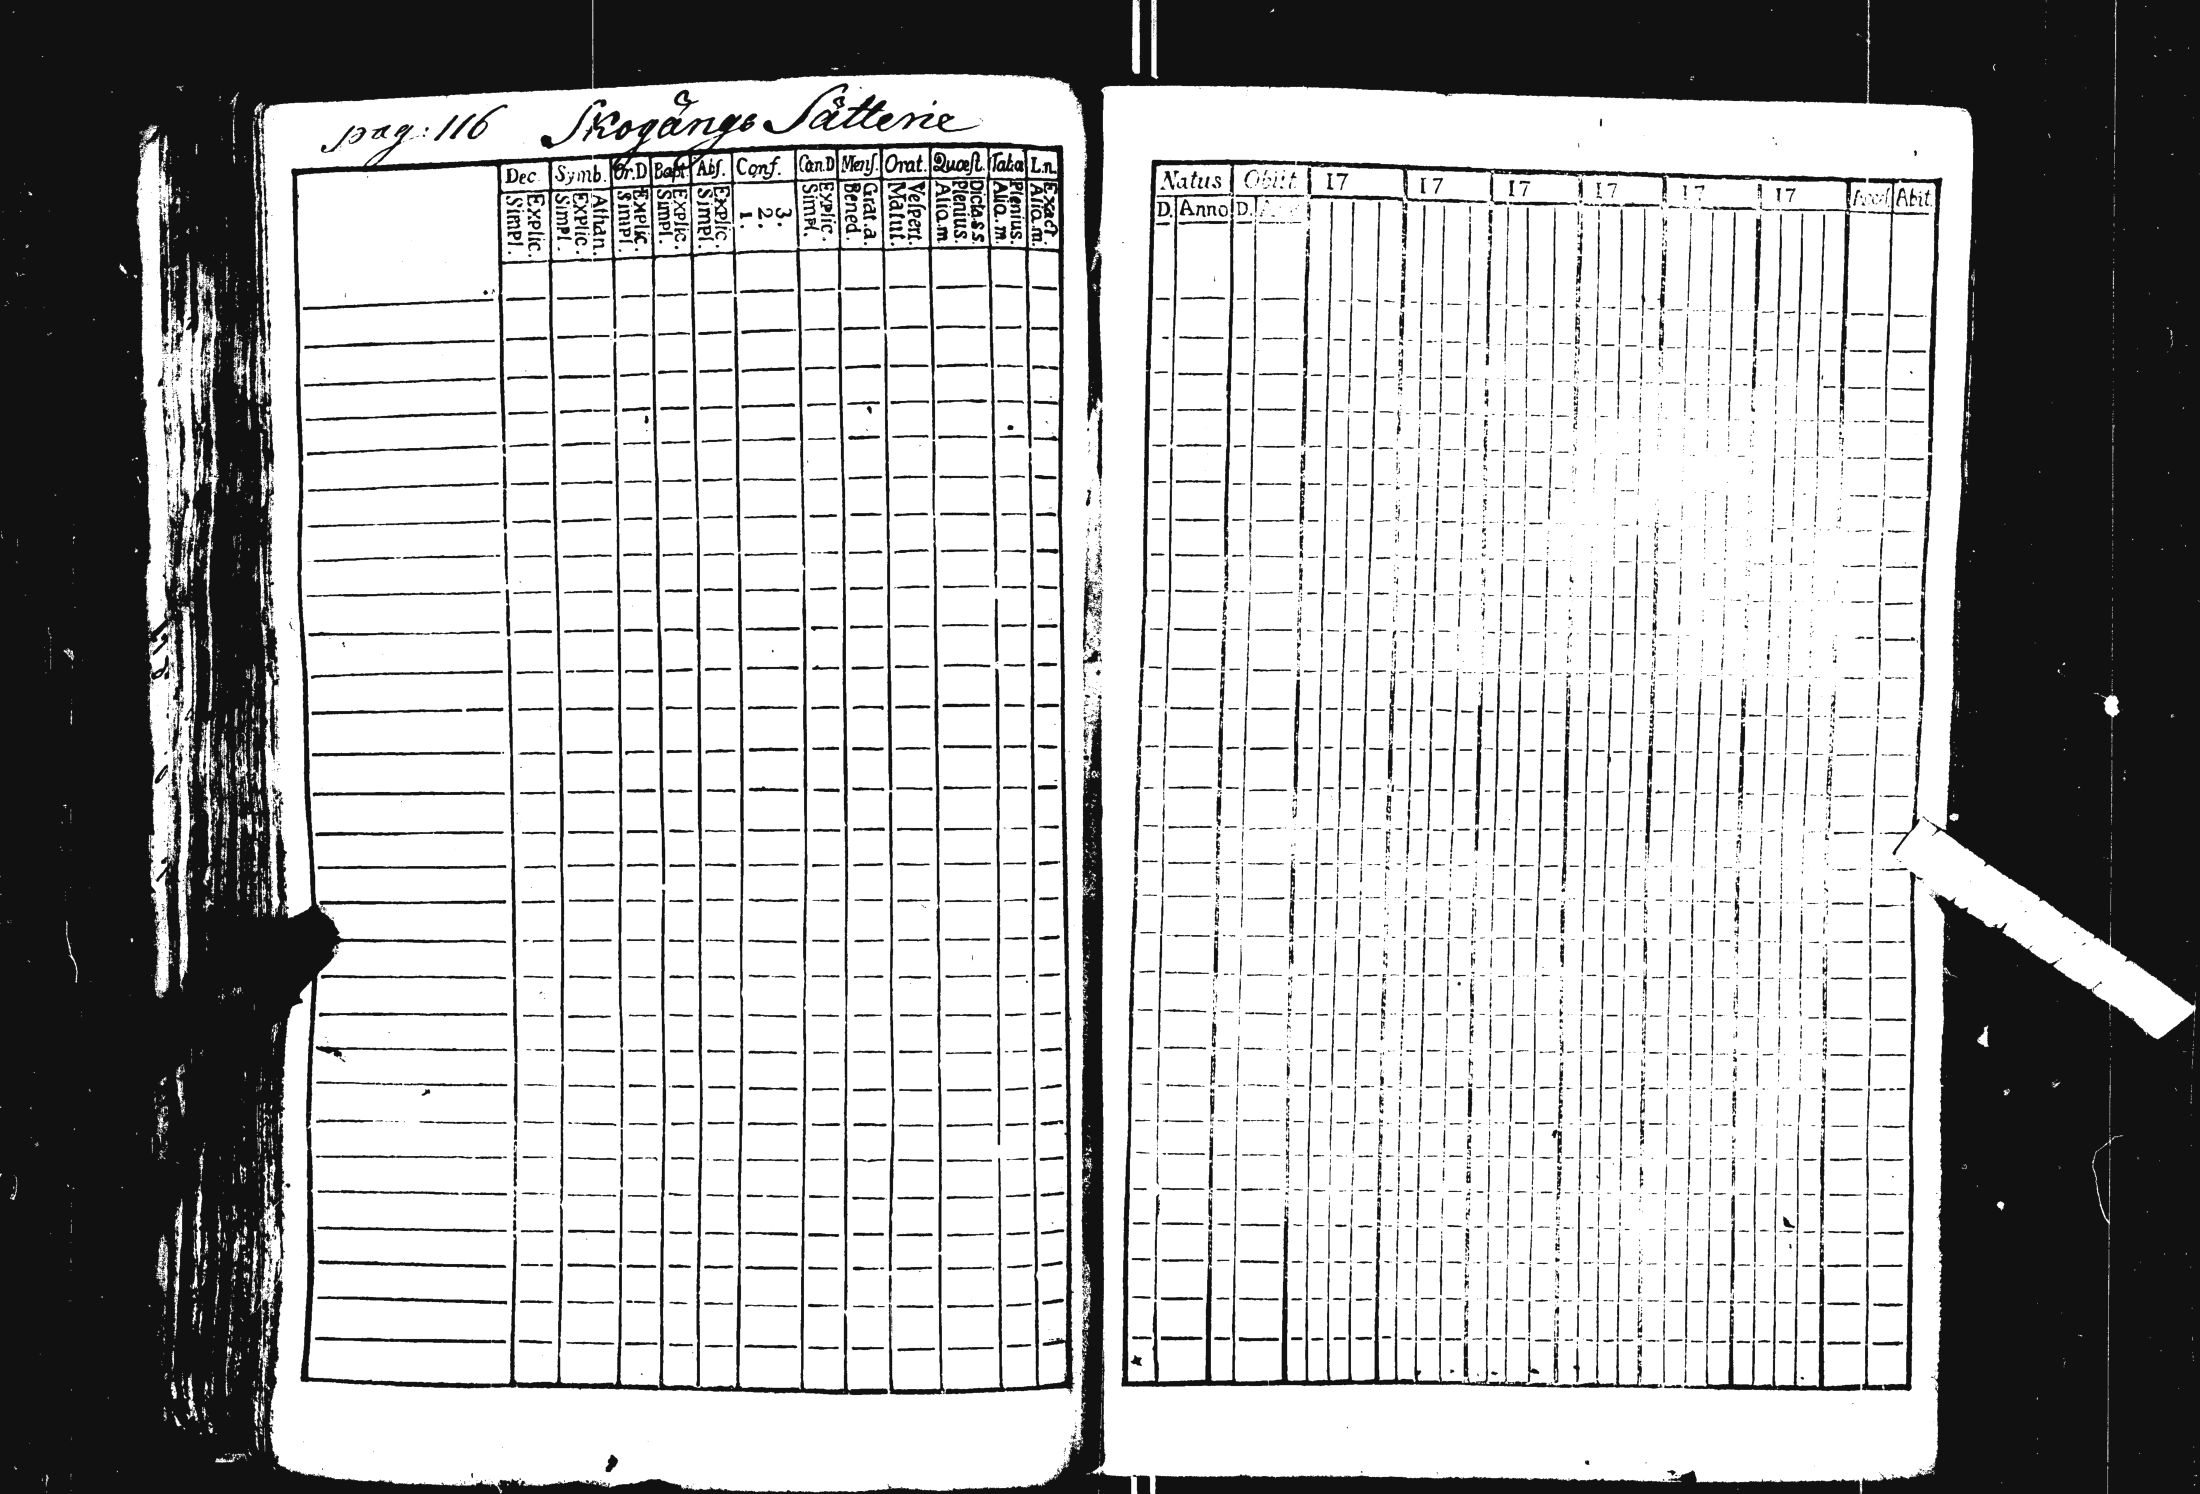 pag: 116 Skogångs Sätterie
Dec. Symb. Or.D Bapt Abſ. Conf. Can.D Menſ. Orat. Quæſt. Tabæ L.n.
Explic. Simpl. Athan. Explic. Simpl. Explic. Simpl. Explic. Simpl. Explic. Simpl. 3. 2. 1. Explic. Simpl. Grat.a. Bened. Veſpert. Matut. Dicta s s. Plenius. Aliq.m. Plenius. Aliq.m. Exact. Aliq.m.
Natus Obiit 17 17 17 17 17 17 Abit.
D. Anno D.